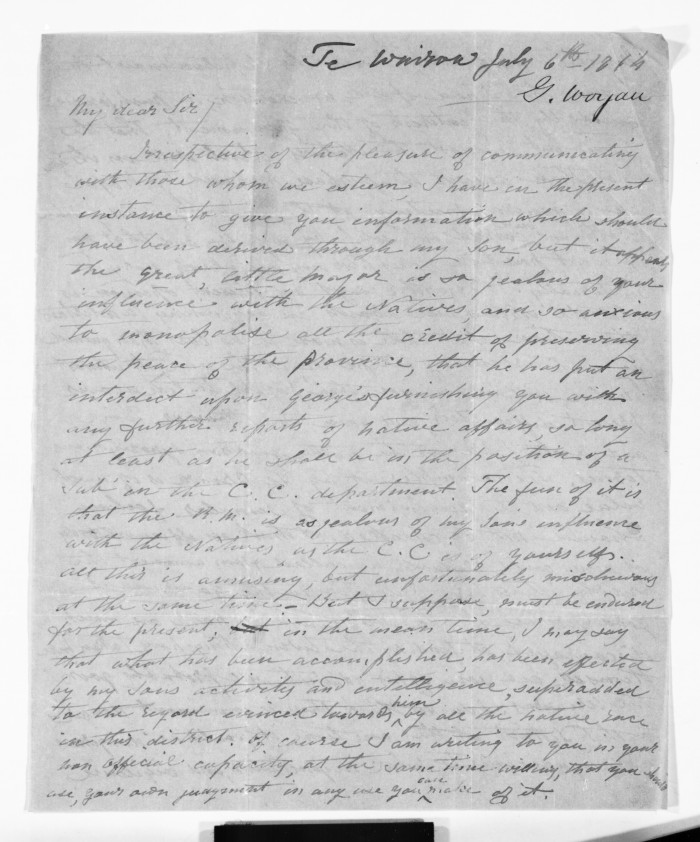 Te Wairoa July 6th 1864
G. Worgan
My dear Sir/
Irrespective of the pleasure of communicating
with those whom we esteem, I have in the present
instance to give you information which should
have been derived through my Son, but it appears
the great, little Major is so jealous of your
influence with the Natives, and so anxious
to monopolise all the credit of preserving
the peace of the Province, that he has put an
interdict upon George's furnishing you with
any further reports of native affairs, so long
at least as he shall be in the position of a
Sub' in the C. C. department. The fun of it is
that the R.M. is as jealous of my Sons influence
with the Natives as the C.C is of yourself.
all this is amusing, but unfortunately mischievous
at the same time - But I suppose, must be endured
for the present, in the mean time, I may say
that what has been accomplished, has been effected
by my Sons activity and intelligence, superadded
to the regard evinced towards him by all the native race
in this district. Of course I am writing to you in your
non official capacity, at the same time willing, that you should
use, your own judgment in any use you can make of it.